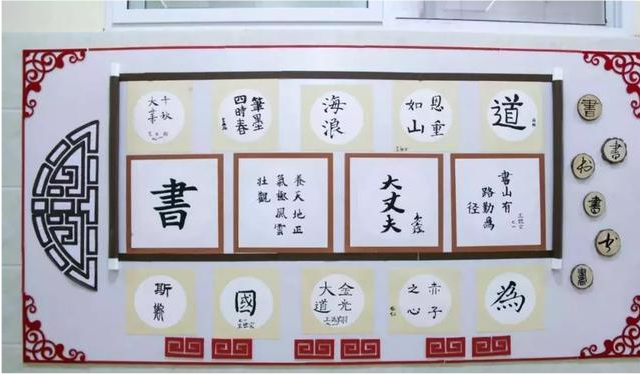 千秋
大業
筆墨
四時春
海浪
恩重
如山
道
書
養天地正
風雲
壯觀
大丈夫
書山有
路勤為
徑
斯
國
金光
大道
赤子
之心
為
書
書
书
書
书
書